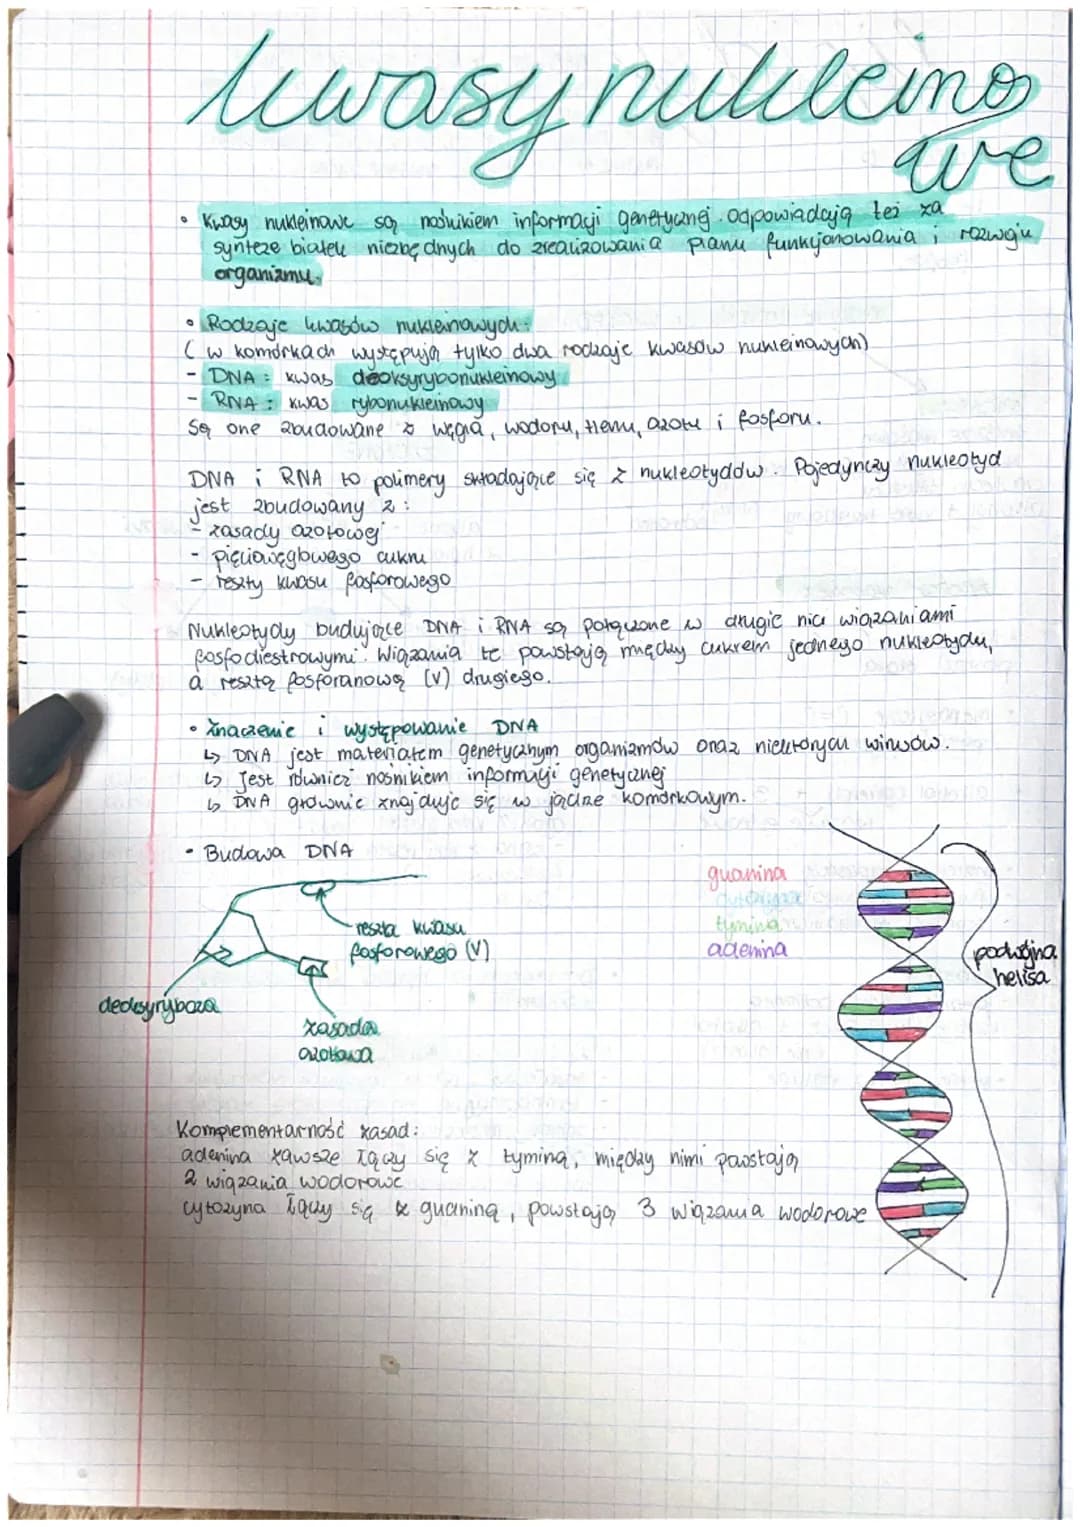 kwasy nukleino
we
• Kwasy nukleinowe są nośnikiem informacji genetycznej. odpowiadają też za
syntezę białek niezbędnych do zrealizowania planu funkcjonowania i rozwoju
organizmu.
• Rodzaje kwasów nukleinowych:
( w komórkach występują tylko dwa rodzaje kwasów nukleinowych)
- DNA: kwas deoksyrybonukleinowy
- RNA: kwas rybonukleinowy
Są one zbudowane z węgla, wodoru, tlenu, azotu i fosforu.
DNA i RNA to polimery składające się z nukleotydów. Pojedynczy nukleotyd
jest zbudowany z:
- zasady azotowej
- pięciowęglowego cukru
- reszty kwasu fosforowego
Nukleotydy budujące DNA i RNA są połączone w długie nici wiązaniami
fosfodiestrowymi. Wiązania te powstają między cukrem jednego nukleotydu,
a resztą fosforanową (V) drugiego.
• Znaczenie i występowanie DNA
↳ DNA jest materiałem genetycznym organizmów oraz niektórych wirusów.
↳ Jest również nośnikiem informacji genetycznej
↳ DNA głównie znajduje się w jądrze komórkowym.
• Budowa DNA
guanina
cytozyna
tymina
adenina
reszta kwasu
fosforowego (V)
podwójna
helisa
deoksyryboza
zasada
azotowa
Komplementarność zasad:
adenina zawsze łączy się z tyminą, między nimi powstają
2 wiązania wodorowe
cytozyna łączy się z guaniną, powstają 3 wiązania wodorowe